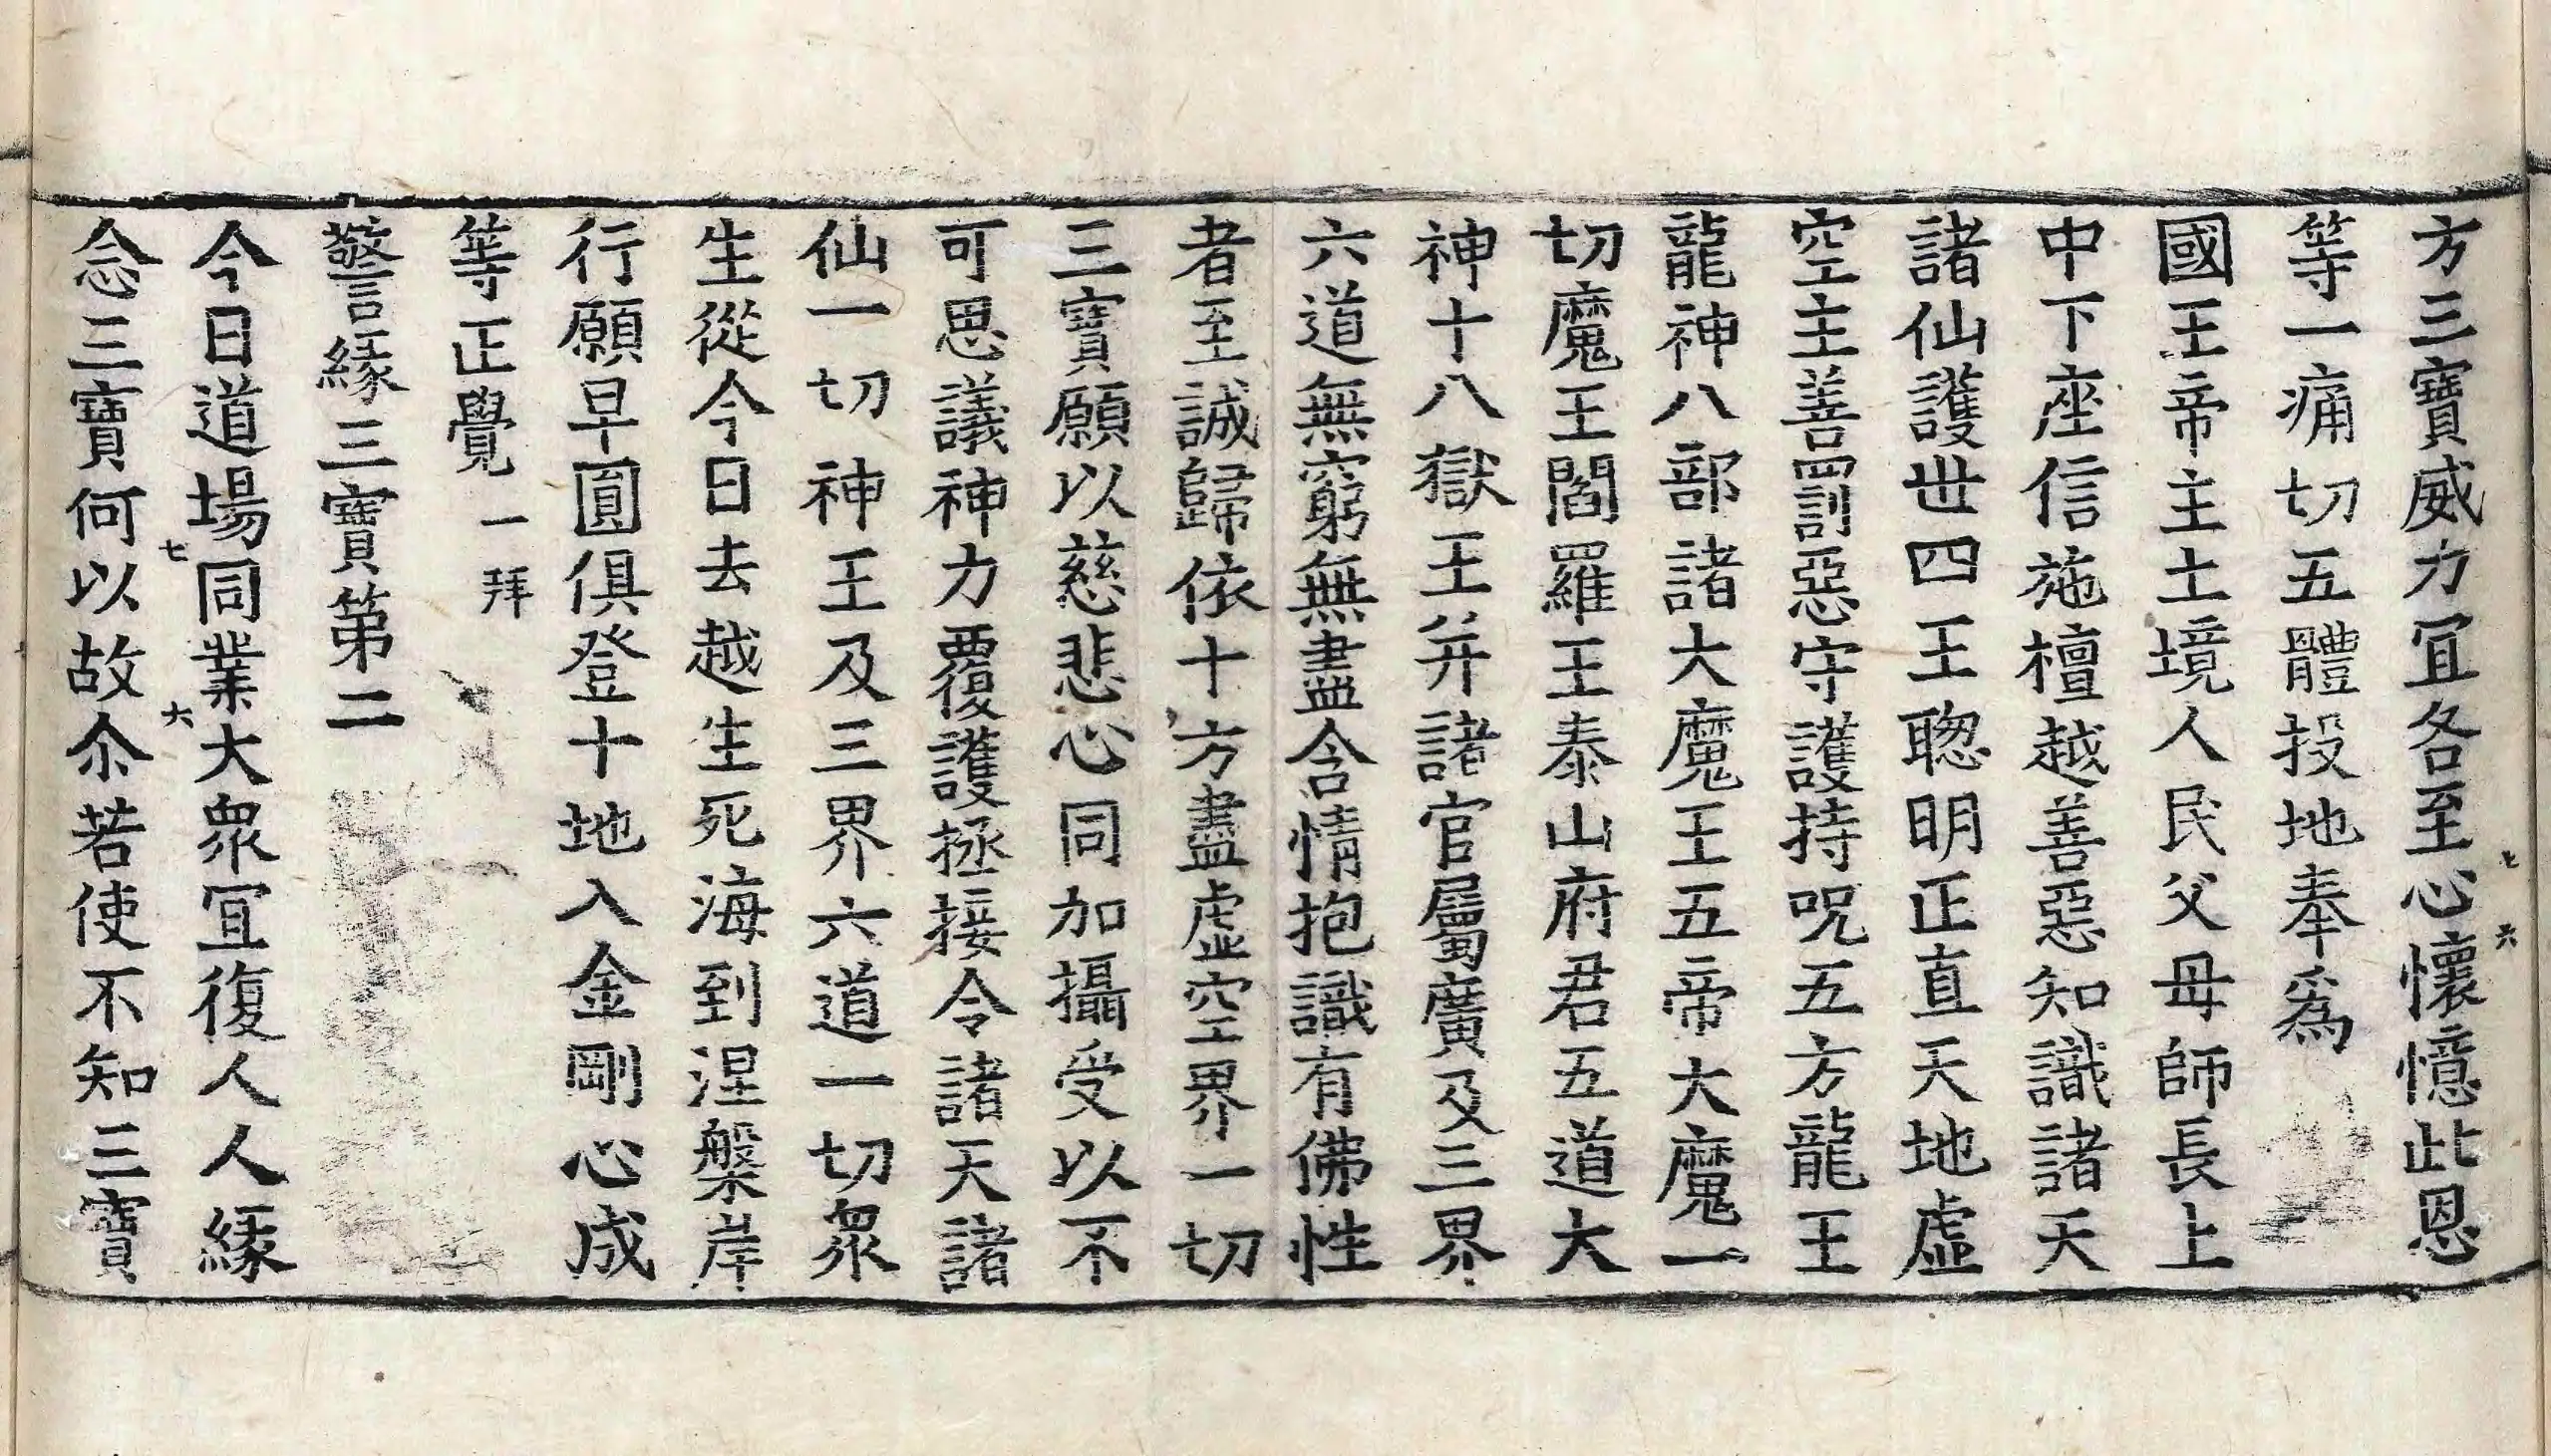 方三寶威力冝各至心懷憶此恩
七 六
等一痛切五體投地奉爲
國王帝主土境人民父母師長上
中下座信施檀越善惡知識諸天
諸仙護世四王聦明正直天地虛
空主善罰惡守護持呪五方龍王
龍神八部諸大魔王五帝大魔一
切魔王閻羅王泰山府君五道大
神十八獄王并諸官屬廣及三界
六道無窮無盡含情抱識有佛性
者至誠歸依十方盡虛空界一切
三寶願以慈悲心同加攝受以不
可思議神力覆護拯接令諸天諸
仙一切神王及三界六道一切衆
生從今日去越生死海到涅槃岸
行願早圓俱登十地入金剛心成
等正覺 一拜
警緣三寶第二
今日道場同業大衆冝復人人緣
七 六
念三寶何以故尒若使不知三寶